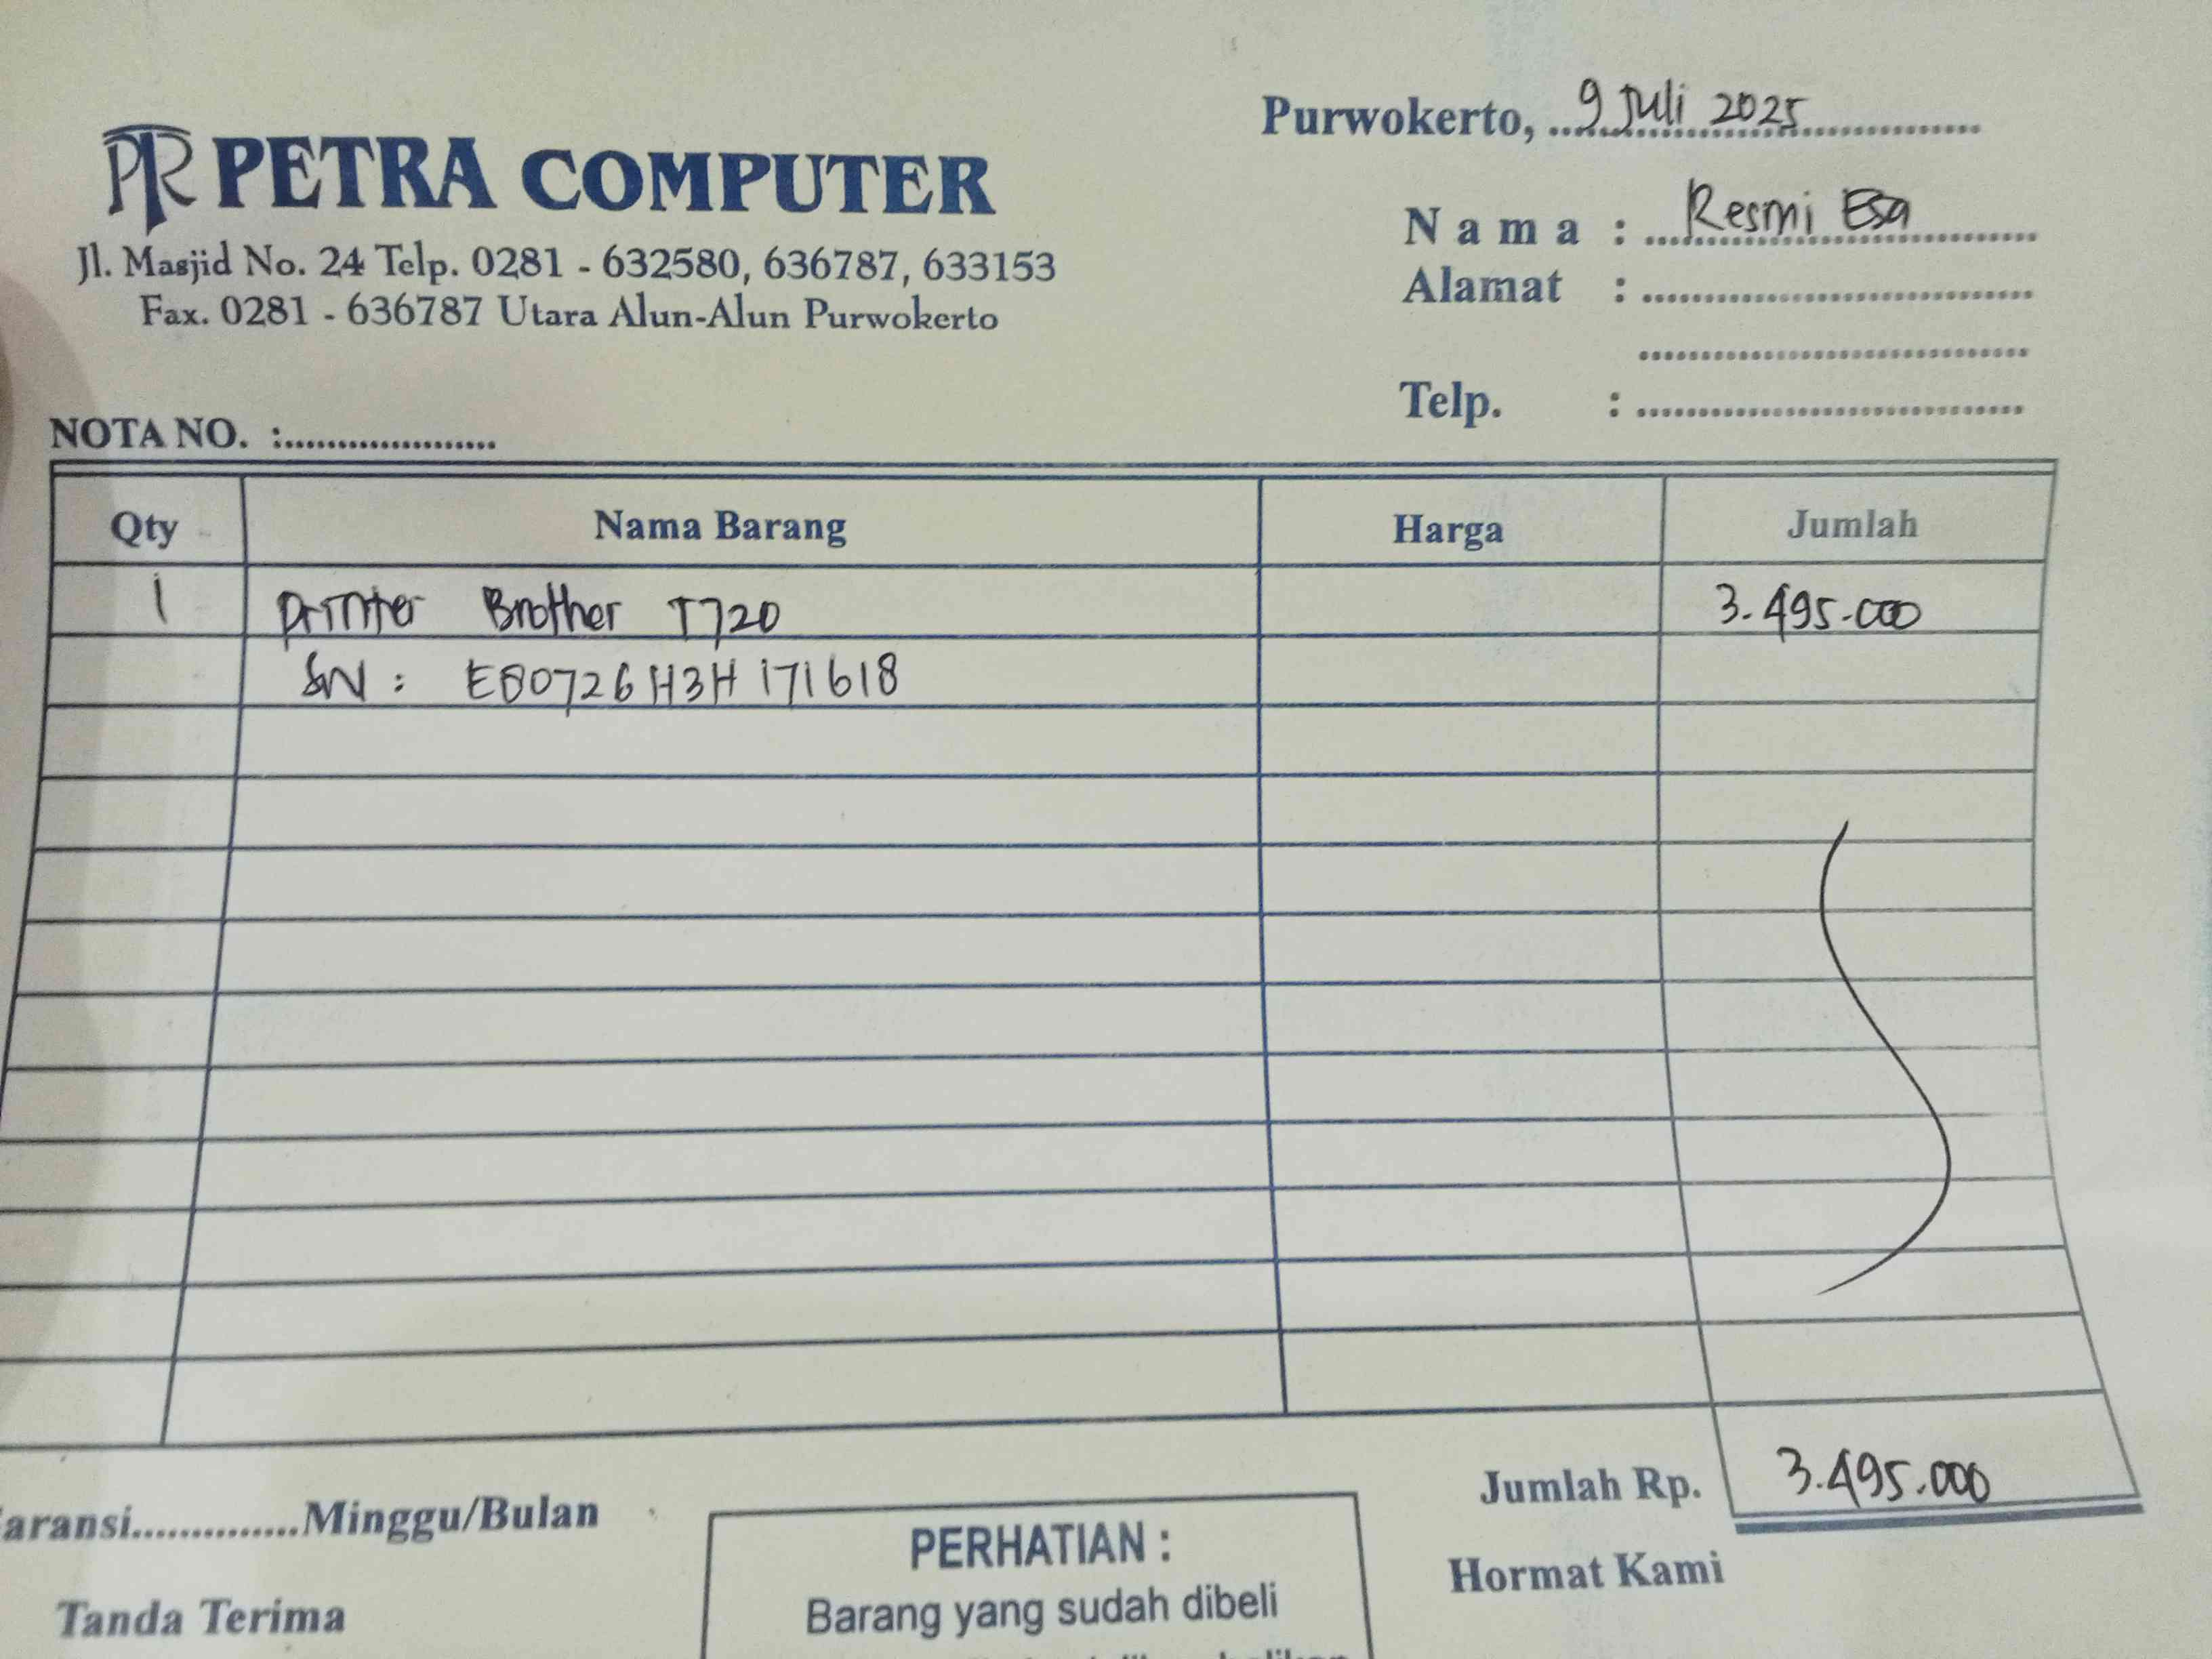 PR PETRA COMPUTER
Jl. Masjid No. 24 Telp. 0281 - 632580, 636787, 633153
Fax. 0281 - 636787 Utara Alun-Alun Purwokerto
Purwokerto, 9 Juli 2025
Nama : Resmi Esa
Alamat :
Telp. :
NOTA NO. :
Qty Nama Barang Harga Jumlah
1 Printer Brother T720 3.495.000
SN : E80726H3H171618
Jumlah Rp. 3.495.000
aransi..............Minggu/Bulan
PERHATIAN :
Barang yang sudah dibeli
Hormat Kami
Tanda Terima